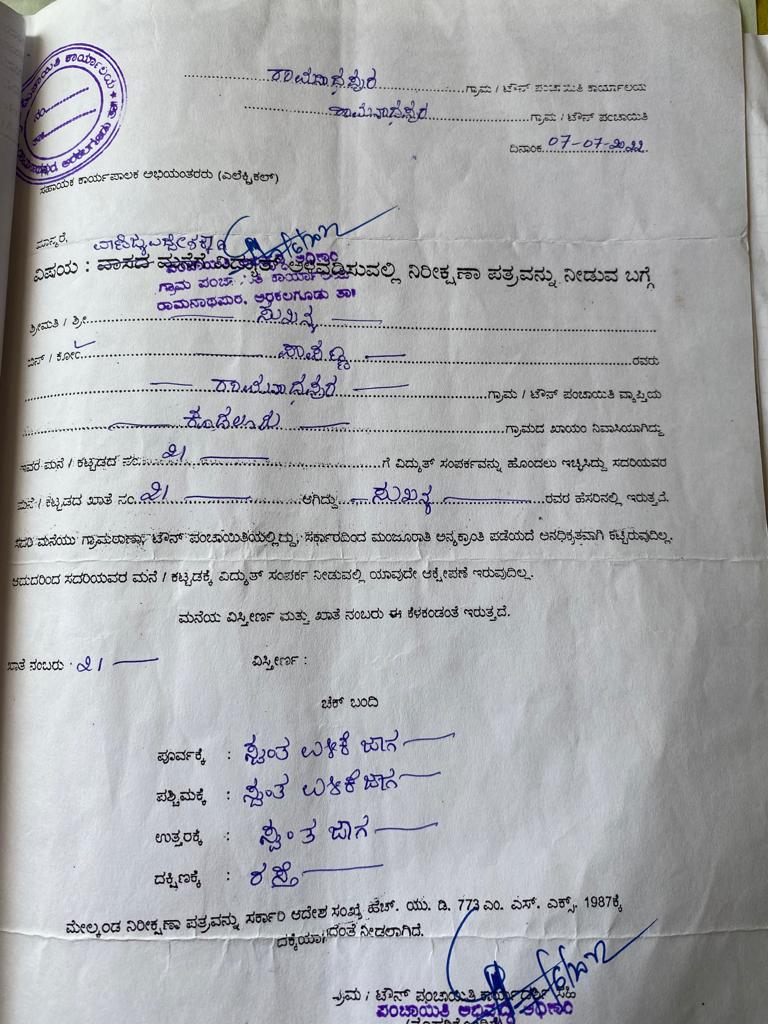 ರಾಮನಾಥಪುರ ಗ್ರಾಮ / ಟೌನ್ ಪಂಚಾಯಿತಿ ಕಾರ್ಯಾಲಯ
ರಾಮನಾಥಪುರ ಗ್ರಾಮ / ಟೌನ್ ಪಂಚಾಯಿತಿ
ದಿನಾಂಕ 07-07-೨೦೨೨
ಸಹಾಯಕ ಕಾರ್ಯಪಾಲಕ ಅಭಿಯಂತರರು (ಎಲೆಕ್ಟ್ರಿಕಲ್)
ಮಾನ್ಯರೆ,
ವಿಷಯ : ವಾಸದ ಮನೆಗೆ ವಿದ್ಯುತ್ ಅಳವಡಿಸುವಲ್ಲಿ ನಿರೀಕ್ಷಣಾ ಪತ್ರವನ್ನು ನೀಡುವ ಬಗ್ಗೆ
ಗ್ರಾಮ ಪಂಚಾಯಿತಿ
ರಾಮನಾಥಪುರ, ಅರಕಲಗೂಡು ತಾ||
ಶ್ರೀಮತಿ / ಶ್ರೀ. ಸುಖನ್ಯ
ಬಿನ್ / ಕೋಂ. ಪಾಪಣ್ಣ ರವರು
ರಾಮನಾಥಪುರ ಗ್ರಾಮ / ಟೌನ್ ಪಂಚಾಯಿತಿ ವ್ಯಾಪ್ತಿಯ
ಗ್ರಾಮದ ಖಾಯಂ ನಿವಾಸಿಯಾಗಿದ್ದು
ಇವರ ಮನೆ / ಕಟ್ಟಡದ ನಂ. ೨1 ಗೆ ವಿದ್ಯುತ್ ಸಂಪರ್ಕವನ್ನು ಹೊಂದಲು ಇಚ್ಛಿಸಿದ್ದು ಸದರಿಯವರ
ಮನೆ / ಕಟ್ಟಡದ ಖಾತೆ ನಂ. ೨1 ಆಗಿದ್ದು ಸುಖನ್ಯ ರವರ ಹೆಸರಿನಲ್ಲಿ ಇರುತ್ತದೆ.
ಸದರಿ ಮನೆಯು ಗ್ರಾಮಠಾಣಾ / ಟೌನ್ ಪಂಚಾಯಿತಿಯಲ್ಲಿದ್ದು, ಸರ್ಕಾರದಿಂದ ಮಂಜೂರಾತಿ ಅನ್ಯಕ್ರಾಂತಿ ಪಡೆಯದೆ ಅನಧಿಕೃತವಾಗಿ ಕಟ್ಟಿರುವುದಿಲ್ಲ.
ಆದುದರಿಂದ ಸದರಿಯವರ ಮನೆ / ಕಟ್ಟಡಕ್ಕೆ ವಿದ್ಯುತ್ ಸಂಪರ್ಕ ನೀಡುವಲ್ಲಿ ಯಾವುದೇ ಆಕ್ಷೇಪಣೆ ಇರುವುದಿಲ್ಲ.
ಮನೆಯ ವಿಸ್ತೀರ್ಣ ಮತ್ತು ಖಾತೆ ನಂಬರು ಈ ಕೆಳಕಂಡಂತೆ ಇರುತ್ತದೆ.
ಖಾತೆ ನಂಬರು : ೨1 ವಿಸ್ತೀರ್ಣ :
ಚೆಕ್ ಬಂದಿ
ಪೂರ್ವಕ್ಕೆ : ಸ್ವಂತ ಬಳಕೆ ಜಾಗ
ಪಶ್ಚಿಮಕ್ಕೆ : ಸ್ವಂತ ಬಳಕೆ ಜಾಗ
ಉತ್ತರಕ್ಕೆ : ಸ್ವಂತ ಜಾಗ
ದಕ್ಷಿಣಕ್ಕೆ : ರಸ್ತೆ
ಮೇಲ್ಕಂಡ ನಿರೀಕ್ಷಣಾ ಪತ್ರವನ್ನು ಸರ್ಕಾರಿ ಆದೇಶ ಸಂಖ್ಯೆ ಹೆಚ್. ಯು. ಡಿ. 773 ಎಂ. ಎಸ್. ಎಕ್ಸ್. 1987ಕ್ಕೆ
ದಕ್ಕೆಯಾಗದಂತೆ ನೀಡಲಾಗಿದೆ.
ಗ್ರಾಮ / ಟೌನ್ ಪಂಚಾಯಿತಿ ಕಾರ್ಯದರ್ಶಿ ಸಹಿ
ಪಂಚಾಯಿತಿ ಅಭಿವೃದ್ಧಿ ಅಧಿಕಾರಿ